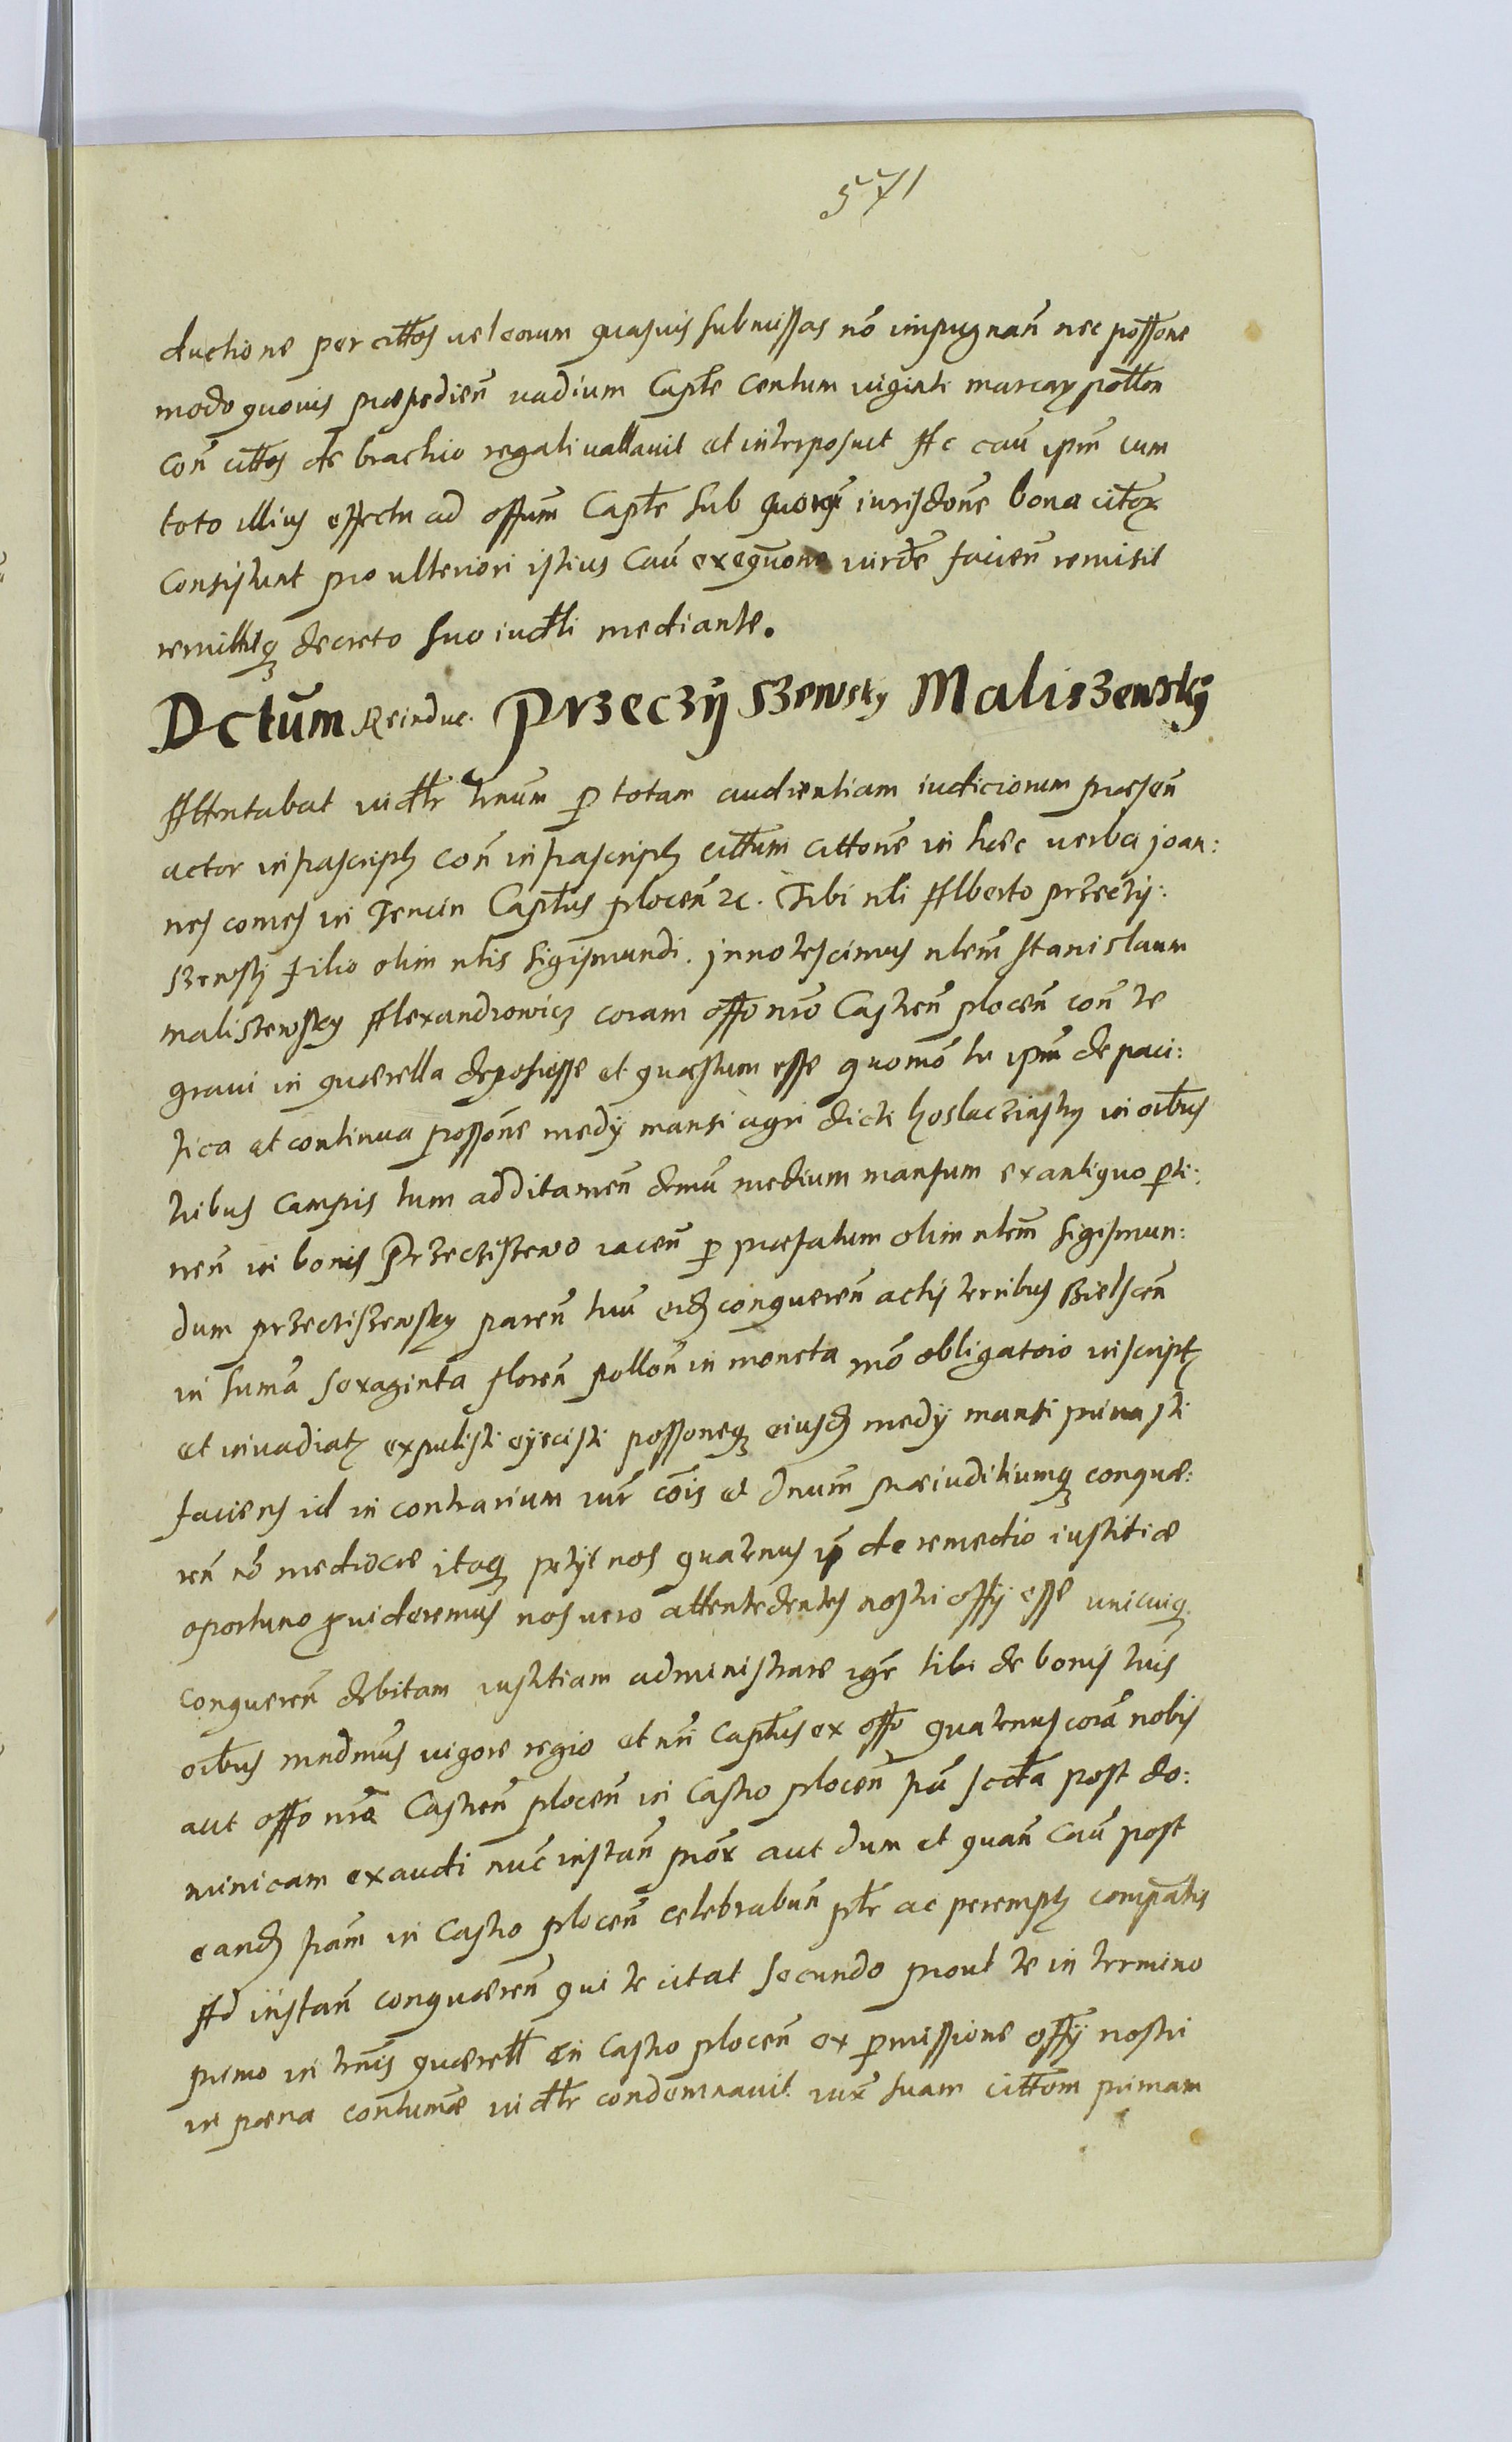 571
ductione per cittos vel eorum quasvis submissas nō impugnan̄ nec possone
modo quovis præpedien̄ vadium Capłe centum viginti marcarꝝ pollon
con̄ cittos de brachio regali vallavit et interposuit Ac cau͂ ipm̄ cum
toto illius effectu ad offum̄ Capłe sub quorum iurisdōne bona citorꝝ
consistunt pro ulteriori istius Cau͂ exequōne iurde facien̄ remisit
remittitqꝫ decreto suo iudłi mediante.
Dctum Reinduc. Przeczÿszewsky Maliszewskÿ
Attentabat iudłr trnum̄ ꝑ totam audientiam iudiciorum præsen̄
actor infrascriptꝫ con̄ infrascriptꝫ cittum cittone in hæc verba Joan:
nes comes in Tencin Captus plocen̄ zc. Tibi nłi Alberto przeczy:
szewskj filio olim nłis Sigismundi. Innotescimus nłem̄ Stanislaum
maliszewsky Alexandrowicz coram offo nro Castren̄ plocen̄ con̄ te
gravi in quærella deposuisse et quæstum esse quomō tu ipm̄ de paci:
fica et continua possōne medÿ mansi agri dicti hoslacziasky in oībus
tribus campis tum additamen̄ demū medium mansum ex antiquo ꝑti:
nen̄ in bonis Przecziszewo iacen̄ ꝑ præfatum olim nłem̄ Sigismun:
dum przecziszewsky paren̄ tuū eidꝫ conqueren̄ actis terribus Bielscen̄
in summa sexaginta floren̄ pollon̄ in moneta mō obligatoio inscriptꝫ
et invadiatꝫ expulisti eÿecisti possoneqꝫ eiusdꝫ medÿ mansi privasti
faciens id in contrarium iur̄ cōis et dnum̄ præiuditiumqꝫ conquæ:
ren̄ nō mediocre itaqꝫ petÿt nos quatenus ip̄ de remedio iustitiæ
oportuno ꝓvideremus nos vero attentedentes nostri offÿ esse unicuiqꝫ
conqueren̄ debitam iustitiam administrare igr̄ tibi de bonis tuis
oībus mndmus vigore regio et nri Captus ex offo quatenus corā nobis
aut offo nro Castren̄ plocen̄ in Castro plocen̄ frā scda post do:
minicam exaudi nunc instan̄ prox aut dum et quan̄ Cau͂ post
eandꝫ fram̄ in Castro plocen̄ celebrabun̄ płr ac peremptꝫ compatis
Ad instan̄ conquæren̄ qui te citat secundo prout te in termino
primo in trnis quærełł in Castro plocen̄ ex ꝑmissione offÿ nostri
in pæna contumæ iudłr condemnavit iux̄ suam cittom primam